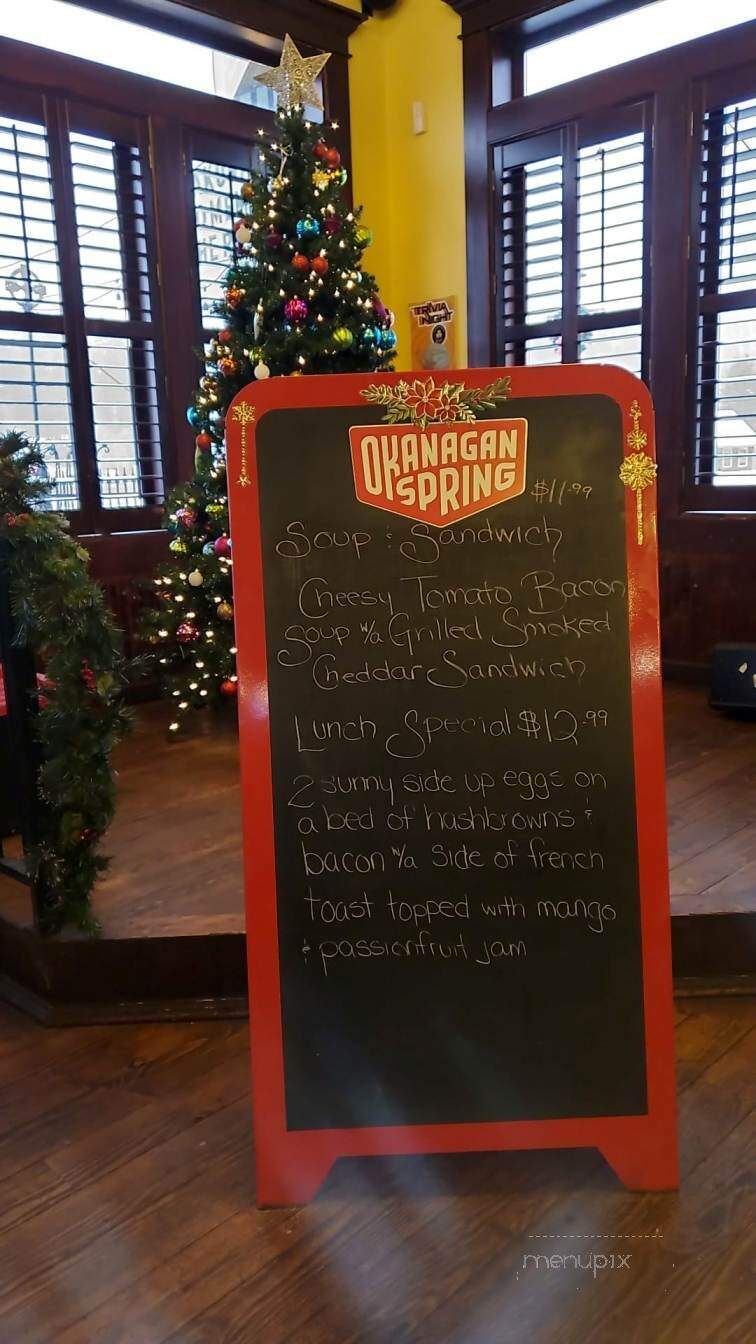 TRIVIA
NIGHT
OKANAGAN
SPRING
$11.99
Soup & Sandwich
Cheesy Tomato Bacon
Soup w/a Grilled Smoked
Cheddar Sandwich
Lunch Special $12.99
2 sunny side up eggs on
a bed of hashbrowns &
bacon w/a side of french
toast topped with mango
& passionfruit jam
menupix